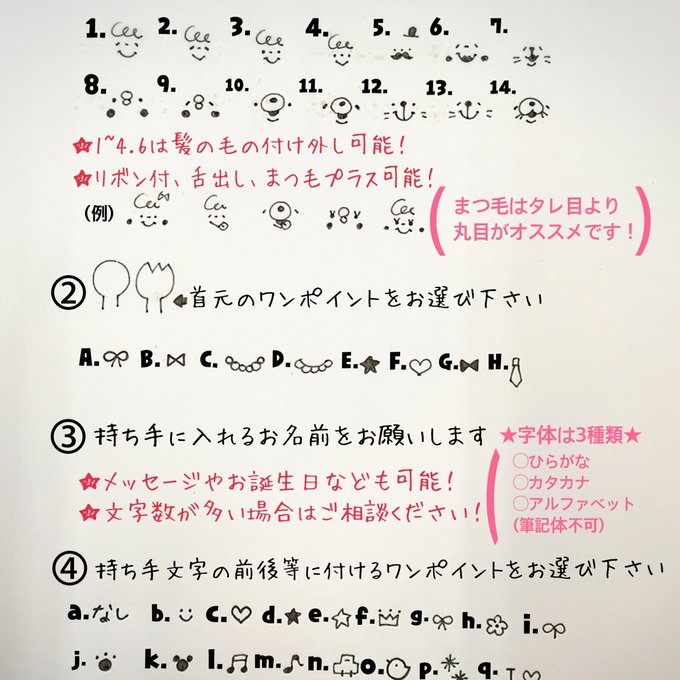 1. 2. 3. 4. 5. 6. 7.
8. 9. 10. 11. 12. 13. 14.
★1~4.6は髪の毛の付け外し可能!
★リボン付、舌出し、まつもプラス可能!
(例)
(まつ毛はタレ目より
丸目がオススメです!)
② 首元のワンポイントをお選び下さい
A. B. C. D. E. F. G. H.
③ 持ち手に入れるお名前をお願いします
★メッセージやお誕生日なども可能!
★文字数が多い場合はご相談ください!
★字体は3種類★
○ひらがな
○カタカナ
○アルファベット
(筆記体不可)
④ 持ち手文字の前後等に付けるワンポイントをお選び下さい
a.なし b. c. d. e. f. g. h. i.
j. k. l. m. n. o. p. q. I